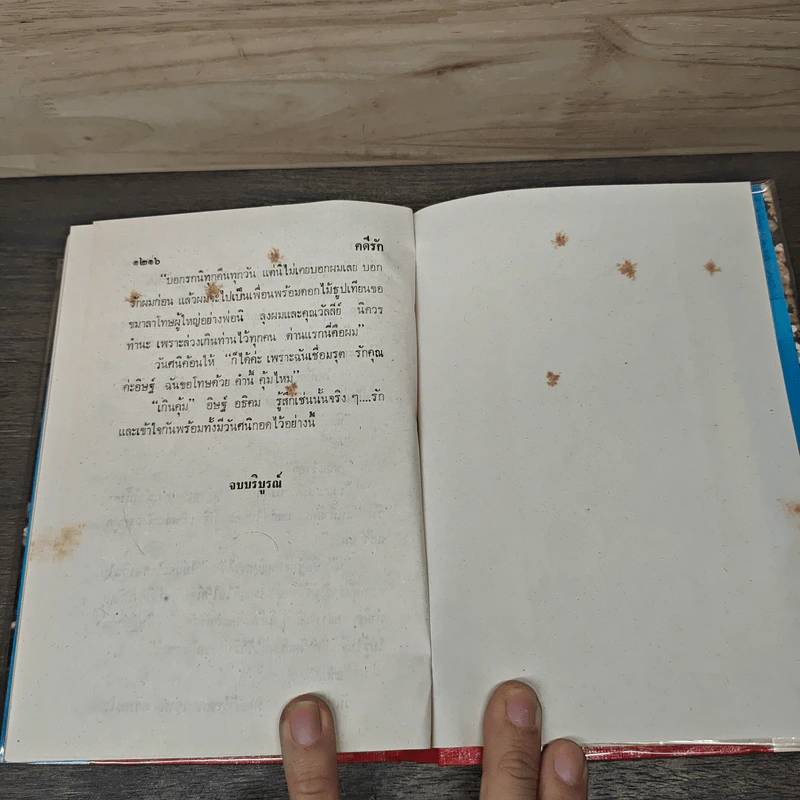 ๑๒๑๖ คดีรัก
“บอกรกนิทกคืนทุกวัน แต่นิไม่เคยบอกผมเลย บอก
รักผมก่อน แล้วผมจะไปเป็นเพื่อนพร้อมดอกไม้ธูปเทียนขอ
ขมาลาโทษผู้ใหญ่อย่างพ่อนิ ลุงผมและคุณวัลลีย์ นิควร
ทำนะ เพราะล่วงเกินท่านไว้ทุกคน ด่านแรกนี่คือผม”
วันศนิค้อนให้ “ก็ได้ค่ะ เพราะฉันเชื่อมรุต รักคุณ
ค่ะอิษฎ์ ฉันขอโทษด้วย คำนี้ คุ้มไหม”
“เกินคุ้ม” อิษฎ์ อธิคม รู้สึกเช่นนั้นจริง ๆ....รัก
และเข้าใจกันพร้อมทั้งมีวันศนิกอดไว้อย่างนี้
จบบริบูรณ์